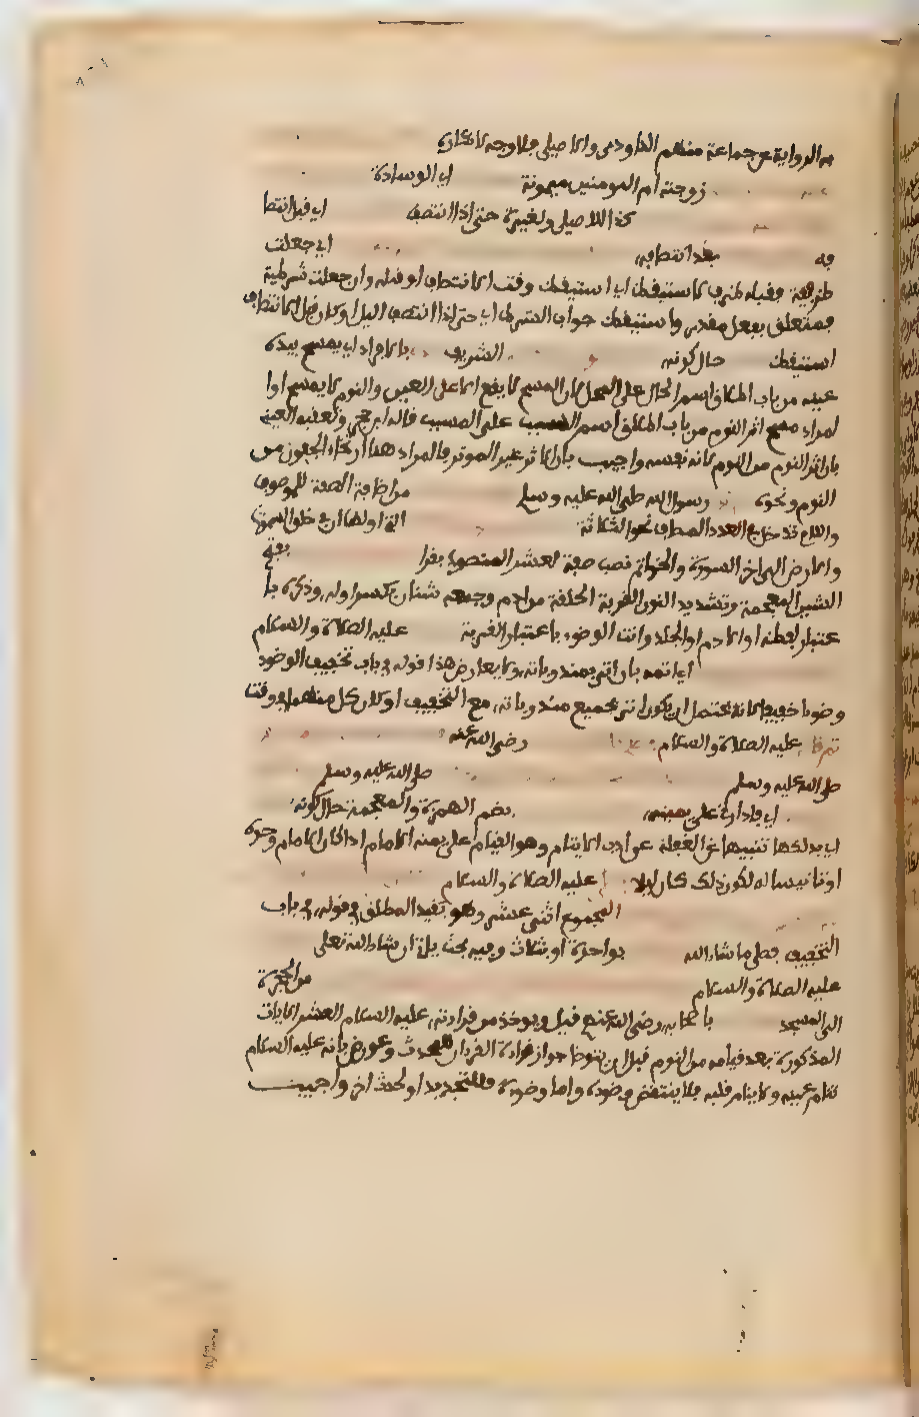 به الرواية عن جماعة منهم الداودي والاصيلي فلا وجه لانكاره
زوجته ام المومنين ميمونة اي الوسادة
كذا للاصيلي ولغيره حتى اذا انتصف اي قبل انتصا
فه بعد انتصافه اي جعلت
ظرفية فقبله ظرف لاستيقظ اي استيقظ وقت الانتصاف او قبله وان جعلت شرطية
فمتعلق بفعل مقدر واستيقظ جواب الشرط اي حتى اذا انتصف اليل او كان قبل الانتصاف
استيقظ حال كونه الشريف بالافراد اي يمسح بيده
عينيه من باب اطلاق اسم الحال على المحل لان المسح لا يقع الا على العين والنوم لا يمسح او ا
لمراد مسح اثر النوم من باب اطلاق اسم السبب على المسبب قاله ابن حجر وتعقبه العيني
بان اثر النوم من النوم لانه نفسه واجيب بان الاثر غير الموثر فالمراد هنا ارتخاء الجفون من
النوم ونحوه رسول الله صلى الله عليه وسلم من اضافة الصفة للموصوف
واللام قد تدخل في العدد المضاف نحو الثلاثة التي اولها ان في خلق السموت
والارض الى اخر السورة والخواتم نصب صفة لعشر المنصوب بقرا بفتح
الشين المعجمة وتشديد النون القربة الخلقة من ادم وجمعه شنان بكسر اوله وذكره با
عتبار لفظه او الادم او الجلد وانث الوضوء باعتبار القربة عليه الصلاة والسلام
اي اتمه بان اتى بمندوباته ولا يعارض هذا قوله في باب تخفيف الوضوء
وضوءا خفيفا لانه يحتمل ان يكون اتى بجميع مندوباته مع التخفيف او كان كل منهما في وقت
عليه الصلاة والسلام رضي الله عنه
صلى الله عليه وسلم صلى الله عليه وسلم
اي فادارني على يمينه بضم الهمزة والمعجمة حال كونه
اي يدلكها تنبيها عن الغفلة عن ادب الايتمام وهو القيام على يمين الامام اذا كان الامام وحده
او تانيسا له لكون ذلك كان ليلا عليه الصلاة والسلام
المجموع اثنتي عشر وهو تقييد المطلق في قوله في باب
التخفيف فصلى ما شاء الله بواحدة او بثلاث وفيه بحث ياتي ان شاء الله تعلى
عليه الصلاة والسلام من الحجرة
الى المسجد باصحابه رضي الله عنهم قيل ويوخذ من قراءته عليه السلام العشر الايات
المذكورة بعد قيامه من النوم قبل ان يتوضا جواز قراءة القرءان للمحدث وعورض بانه عليه السلام
تنام عينه ولا ينام قلبه فلا ينتقض وضوءه واما وضوءه فللتجديد او لحدث اخر واجيب